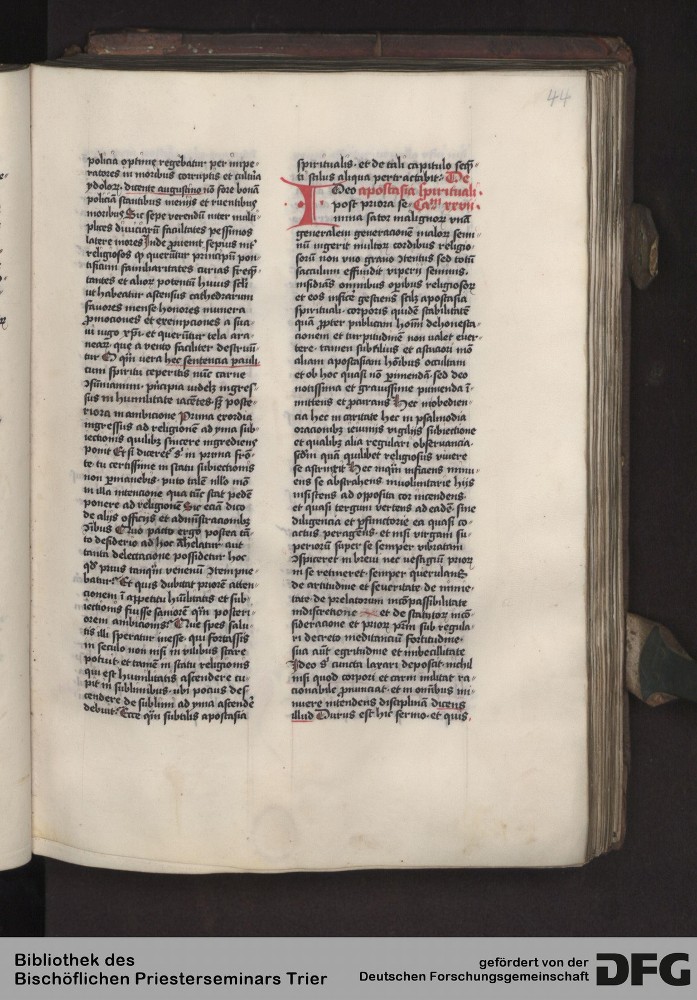 44
policia optime regebatur per impe-
ratores in moribus corruptis et cultura
ydoloꝝ. dicente augustino nō fore bonā
policiā stantibus meniis et ruentibus
moribus Sic sepe verendū inter multi-
plices diviciarū facultates pessimos
latere mores Inde
religiosos
tisicum familiaritates curias freq̄-
tantes et alioꝝ potentū huius scli
ut habeatur ascensus cathedrarum
favores mense honores munera
p̄mociones et exempciones a sua-
vi iugo xp̄i et querūtur tela ara-
nearꝝ que a vento faciliter destruū-
tur O qm̄ vera hec sentencia pauli
cum spiritu ceperitis nūc carne
9sumamini. principia videlꝫ ingres-
sus in humilitate iacētes. sꝫ poste-
riora in ambicione Prima exordia
ingressus ad religionē ad yma sub-
iectionis quilibꝫ sincere ingrediens
ponit Et si diceret s' in prima frō-
te. tu certissime in statu subiectionis
non permanebis. puto talē illo mō
in illa intencione qua tūc stat pedē
ponere ad religionē Sic eciā dico
de aliis officiis et administracionibꝫ
Quo pacto ergo postea tā-
to desiderio ad hoc Ahelatur aut
tanta delectacione possidetur hoc
qd' prius tanqm̄ venenū
batur. Et quis dubitat priorē atten-
cionem ī appetitu hūilitatis et sub-
iectionis fuisse saniorē qm̄ posteri-
orem ambicionis. Que spes salu-
tis illi speratur inesse. qui fortassis
in seculo non nisi in vilibus stare
potuit. et tamē in statu religionis
qui est humilitatis ascendere cu-
pit in sublimibus. ubi pocius des-
cendere de sublimi ad yma ascendē
debuit. Ecce qm̄ subtilis apostasia
spiritualis. et de tali capitulo seq̄-
ti stilus aliqua pertractabit. De
Deo apostasia spirituali.
post priora se- Ca𝔪 xxvii.
minia sator malignoꝝ unā
generalem generacionē maloꝝ semi-
nū ingerit multoꝝ cordibus religio-
sorū non uno grano Itentus sed totū
sacculum effundit viperei seminis.
insidians omnibus opibus religiosoꝝ
et eos inficē gestiens scilꝫ apostasia
spirituali. corporis quidē stabilitatē
quā propter publicam homī dehonesta-
cionem et turpitudinē non valet ever-
tere. tamen subtilius et astuciori mō
aliam apostasiam hōibus occultam
et ob hoc quasi nō punienda. sed deo
notissima et gravissime punienda ī-
mittens et p̄curans Hec inobedien-
cia hec in caritate hec in psalmodia
oracionibꝫ ieiuniis vigiliis subiectione
et qualibꝫ alia regulari observancia.
scdm̄ quā quilibet religiosus vivere
se astringit Hec inqm̄ insciens inimi-
cus se abstrahens involuntarie hiis
insistens ad opposita cor incendens.
et quasi tergum vertens ad eadē sine
diligencia et p̄functorie ea quasi co-
actus peragens. et nisi virgam su-
periorū super se semper vibratam
9spiceret in brevi nec vestigiū prioꝝ
in se retineret. semper querulans
de artitudine et severitate de inme-
tate. de prelatorum incōpassibilitate
indiscretione et de statutoꝝ incō-
sideracione et prioꝝ prm̄ sub regula-
ri decreto meditanciū fortitudine.
sua aūt egritudine et imbecillitate
Ideo s' cuncta laxari deposcit. nichil
nisi quod corpori et carni militat ra-
cionabile p̄nunciat. et in omnibus mi-
nuere intendens disciplinā dicens
illud Durus est hic sermo. et quis.
Bibliothek des
Bischöflichen Priesterseminars Trier
gefördert von der
Deutschen Forschungsgemeinschaft
DFG